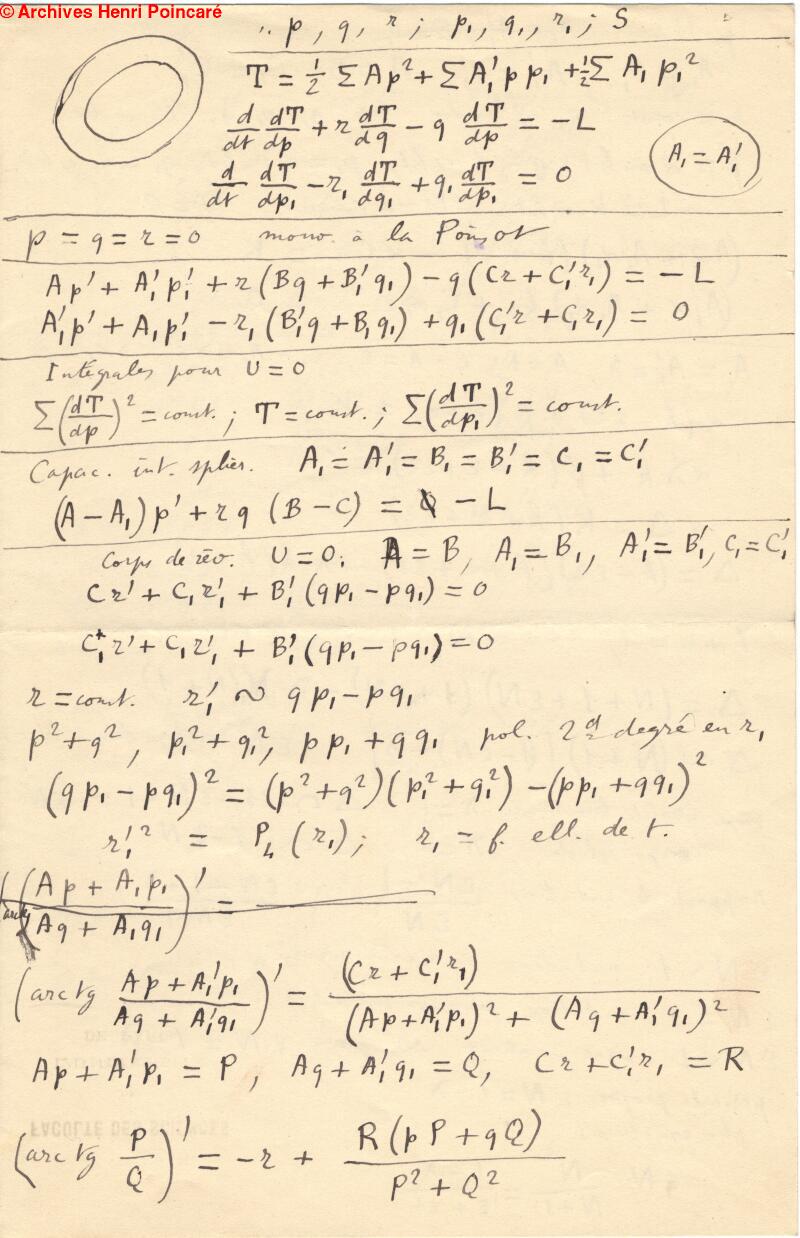 © Archives Henri Poincaré
p, q, r ; p₁, q₁, r₁ ; S
T = ½ Σ Ap² + Σ A₁' p p₁ + ½ Σ A₁ p₁²
d/dt dT/dp + r dT/dq − q dT/dp = −L
A₁ = A₁'
d/dt dT/dp₁ − r₁ dT/dq₁ + q₁ dT/dp₁ = 0
p = q = r = 0 mouv. à la Poinsot
Ap' + A₁'p₁' + r (Bq + B₁'q₁) − q (Cr + C₁'r₁) = −L
A₁'p' + A₁p₁' − r₁ (B₁'q + B₁q₁) + q₁ (C₁'r + C₁r₁) = 0
Intégrales pour U = 0
Σ (dT/dp)² = const. ; T = const. ; Σ (dT/dp₁)² = const.
Capac. int. sphér. A₁ = A₁' = B₁ = B₁' = C₁ = C₁'
(A − A₁) p' + r q (B − C) = −L
Corps de rév. U = 0. A = B, A₁ = B₁, A₁' = B₁', C₁ = C₁'
Cr' + C₁r₁' + B₁' (qp₁ − pq₁) = 0
C₁'r' + C₁r₁' + B₁' (qp₁ − pq₁) = 0
r = const. r₁' ∾ qp₁ − pq₁
p² + q², p₁² + q₁², pp₁ + qq₁ pol. 2d degré en r₁
(qp₁ − pq₁)² = (p² + q²)(p₁² + q₁²) − (pp₁ + qq₁)²
r₁'² = P₄ (r₁) ; r₁ = f. ell. de t.
(arctg (Ap + A₁p₁)/(Aq + A₁q₁))' =
(arctg (Ap + A₁'p₁)/(Aq + A₁'q₁))' = (Cr + C₁'r₁)/((Ap + A₁'p₁)² + (Aq + A₁'q₁)²)
Ap + A₁'p₁ = P, Aq + A₁'q₁ = Q, Cr + C₁'r₁ = R
(arctg P/Q)' = −r + R (pP + qQ)/(P² + Q²)